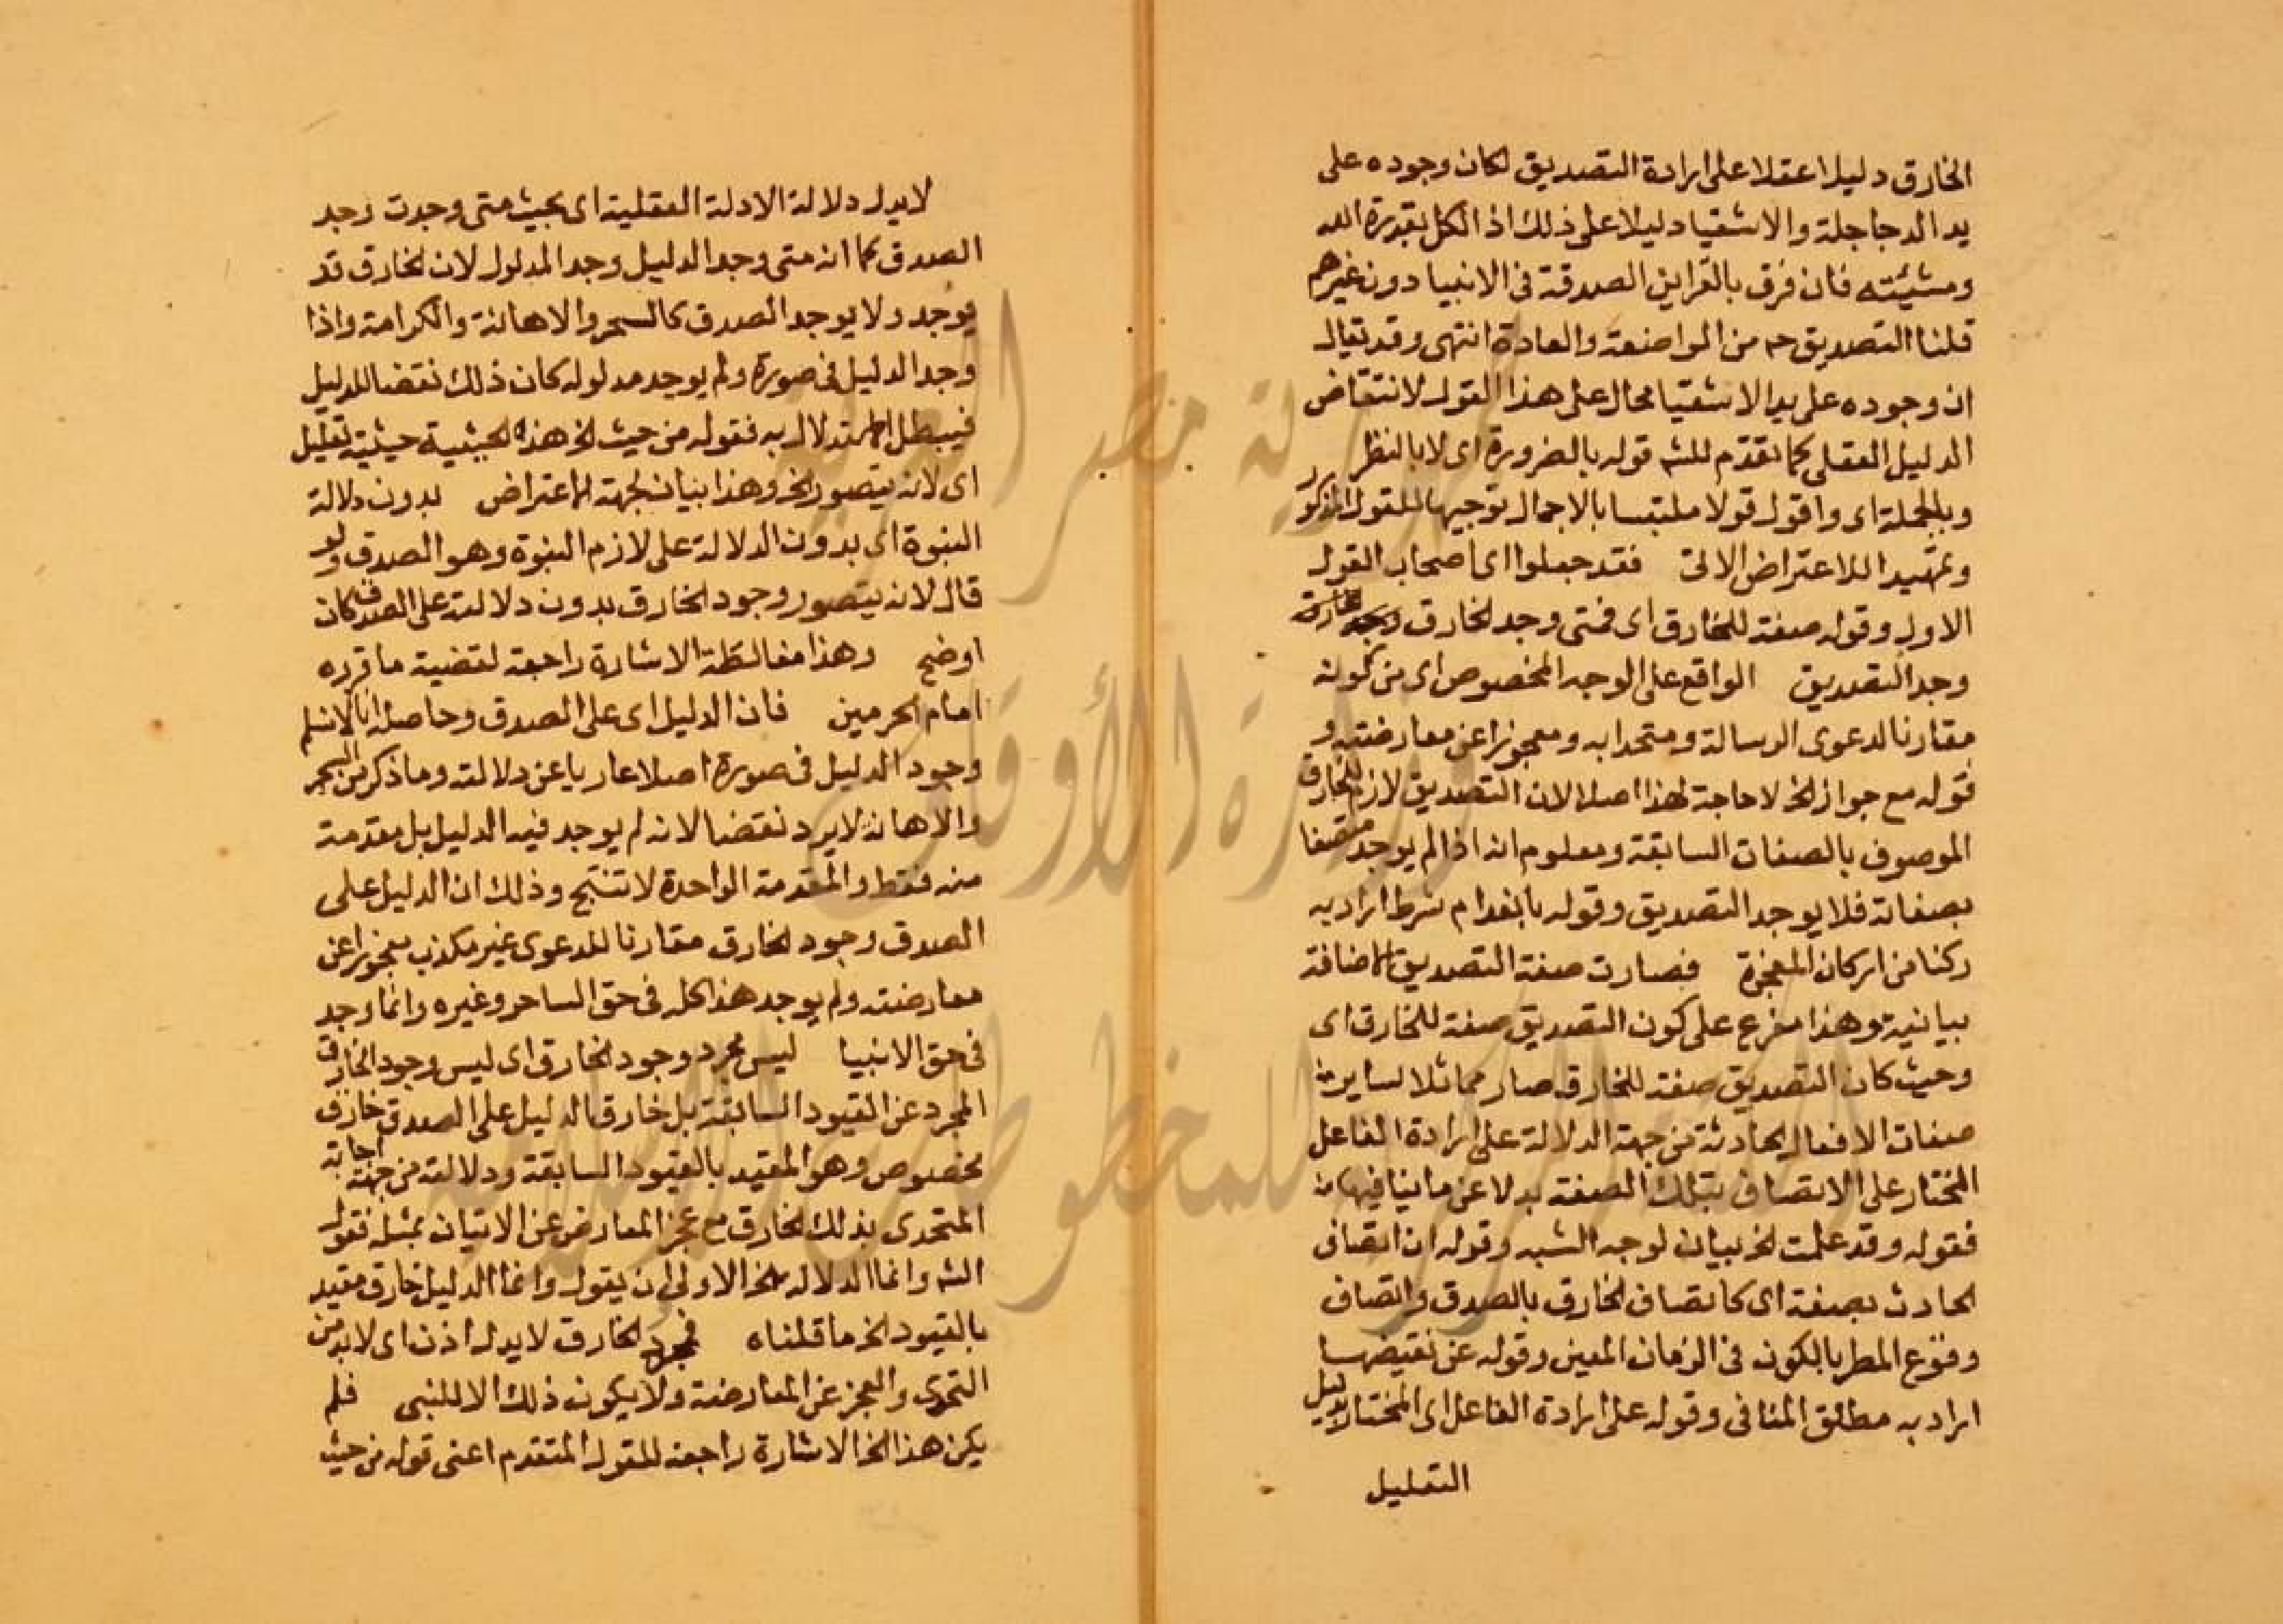 الخارق دليلا عقلا على ارادة التصديق لكان وجوده على
يد الدجاجلة والاشقيا دليلا على ذلك اذ الكل بقدرة الله
ومشيئته فان فرق بالقراين الصدقة فى الانبيا دون غيرهم
قلنا التصديق ح من المواضعة والعادة انتهى وقد يقال
ان وجوده على يد الاشقيا محال على هذا القول لانتقاض
الدليل العقلى كما تقدم للشه قوله بالضرورة اى لا بالنظر
وبالجملة اى واقول قولا ملتبسا بالاجمال توجيها للقول المذكور
وتمهيدا للاعتراض الاتى فقد جعلوا اى اصحاب القول
الاول وقوله صفة للخارق اى فمتى وجد الخارق
وجد التصديق الواقع على الوجه المخصوص اى من كونه
مقارنا لدعوى الرسالة ومتحدا به ومعجوزا عن معارضته و
قوله مع جواز الخ لا حاجة لهذا اصلا لان التصديق لازم للخارق
الموصوف بالصفات السابقة ومعلوم انه اذا لم يوجد متصفا
بصفاته فلا يوجد التصديق وقوله بانعدام شرط اراد به
ركنا من اركان المعجزة فصارت صفة التصديق الاضافة
بيانية وهذا مفرع على كون التصديق صفة للخارق اى
وحيث كان التصديق صفة للخارق صار مماثلا لساير
صفات الافعال الحادثة من جهة الدلالة على ارادة الفاعل
المختار على الاتصاف بتلك الصفة بدلا عن ما ينافيها
فقوله وقد علمت الخ بيان لوجه الشبه وقوله ان اتصاف
الحادث بصفة اى كاتصاف الخارق بالصدق واتصاف
وقوع المطر بالكون فى الزمان المعين وقوله عن نقيضها
اراد به مطلق المنافى وقوله على ارادة الفاعل اى المختار بدليل
التعليل
لا يدل دلالة الادلة العقلية اى بحيث متى وجدت وجد
الصدق كما انه متى وجد الدليل وجد المدلول لان الخارق قد
يوجد ولا يوجد الصدق كالسحر والاهانة والكرامة واذا
وجد الدليل فى صورة ولم يوجد مدلوله كان ذلك نقضا للدليل
فيبطل الاستدلال به فقوله من حيث الخ هذه الحيثية حيثية تعليل
اى لانه يتصور الخ وهذا بيان لجهة الاعتراض بدون دلالة
النبوة اى بدون الدلالة على لازم النبوة وهو الصدق ولو
قال لانه يتصور وجود الخارق بدون دلالته على الصدق كان
اوضح وهذا مغالطة الاشارة راجعة لقضية ما قرره
امام الحرمين فان الدليل اى على الصدق وحاصله انا لا نسلم
وجود الدليل فى صورة اصلا عاريا عن دلالته وما ذكر من السحر
والاهانة لا يرد نقضا لانه لم يوجد فيه الدليل بل مقدمة
منه فقط والمقدمة الواحدة لا تنتج وذلك ان الدليل على
الصدق وجود الخارق مقارنا للدعوى غير مكذب معجوزا عن
معارضته ولم يوجد هذا كله فى حق الساحر وغيره وانما وجد
فى حق الانبيا ليس مجرد وجود الخارق اى ليس وجود الخارق
المجرد عن القيود السابقة بل خارق الدليل على الصدق خارق
مخصوص وهو المقيد بالقيود السابقة ودلالته من جهة اجابة
المتحدى بذلك الخارق مع عجز المعارض عن الاتيان بمثله فقول
الشه وانما الدلالة الخ الاولى ان يقول وانما الدليل خارق مقيد
بالقيود الخ ما قلناه فمجرد الخارق لا يدل اذن اى لا بد من
التحدى والعجز عن المعارضة ولا يكون ذلك الا للنبى فلم
يكن هذا الخ الاشارة راجعة للقول المتقدم اعنى قوله من حيث